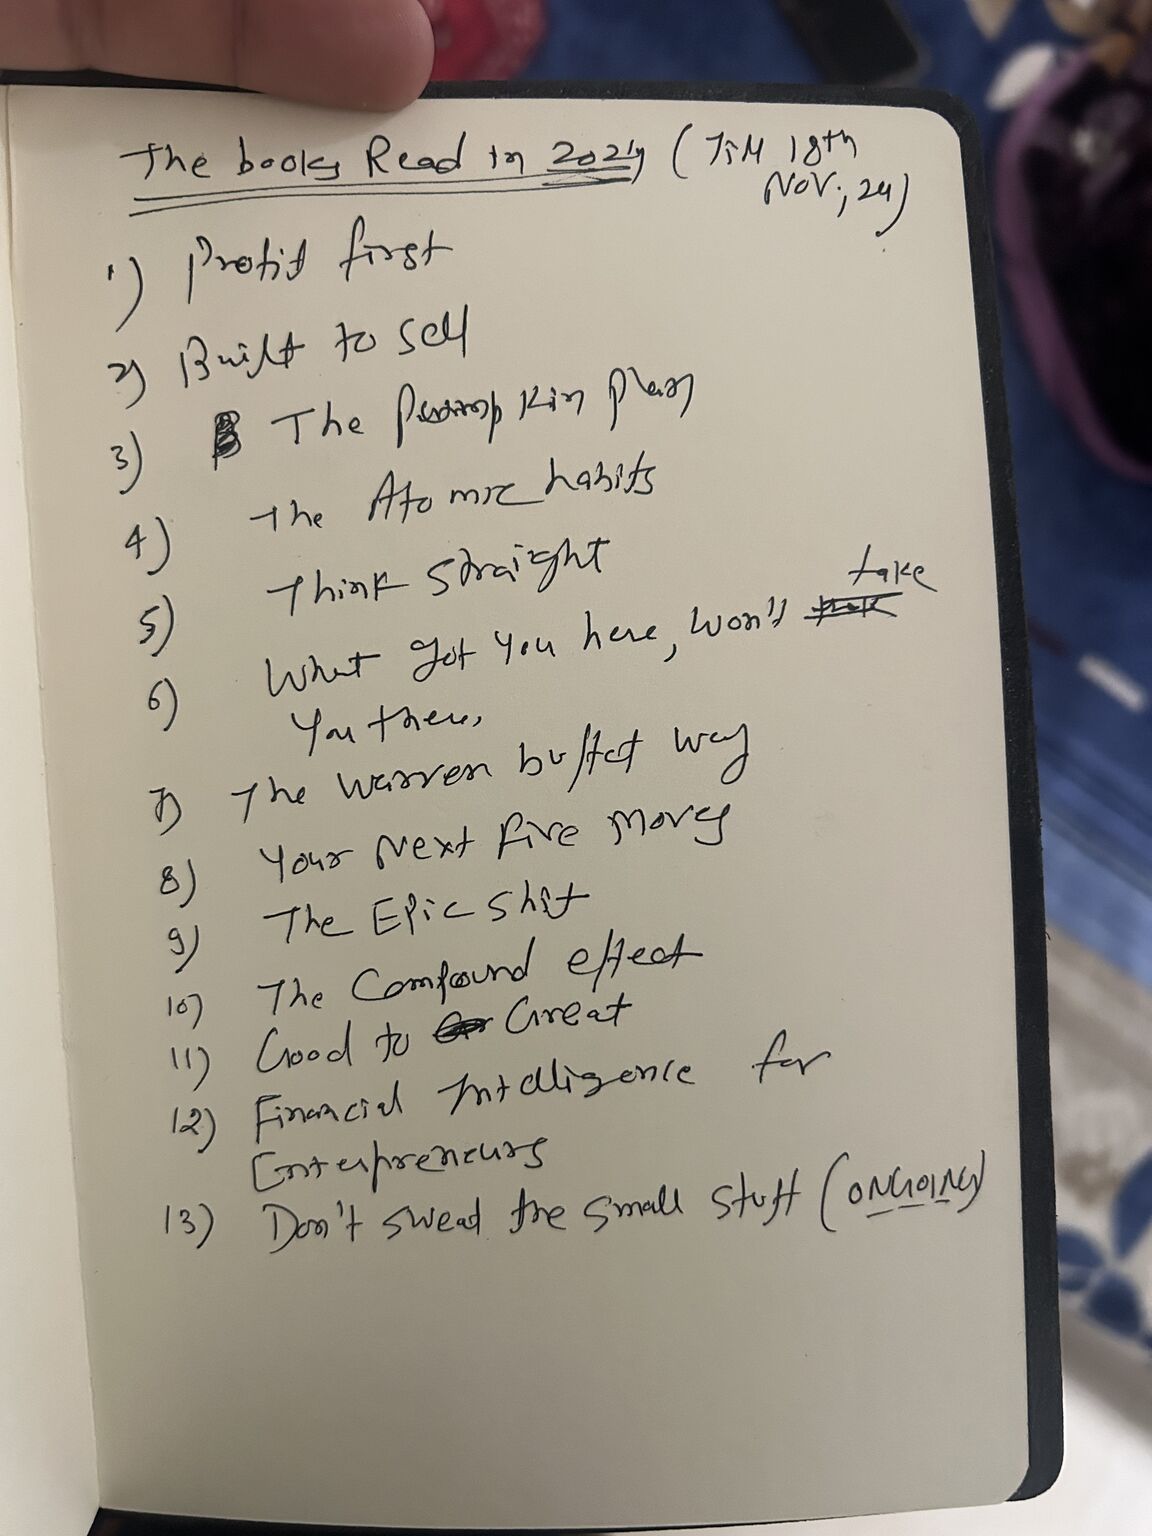 The books Read in 2024 (Till 18th
Nov, 24)
1) Profit first
2) Built to sell
3) The Pumpkin plan
4) The Atomic habits
5) Think straight
6) What got you here, won't take
You there,
7) The Warren buffet way
8) Your Next five moves
9) The Epic shit
10) The Compound effect
11) Good to Great
12) Financial Intelligence for
Enterpreneurs
13) Don't swead the small stuff (ONGOING)